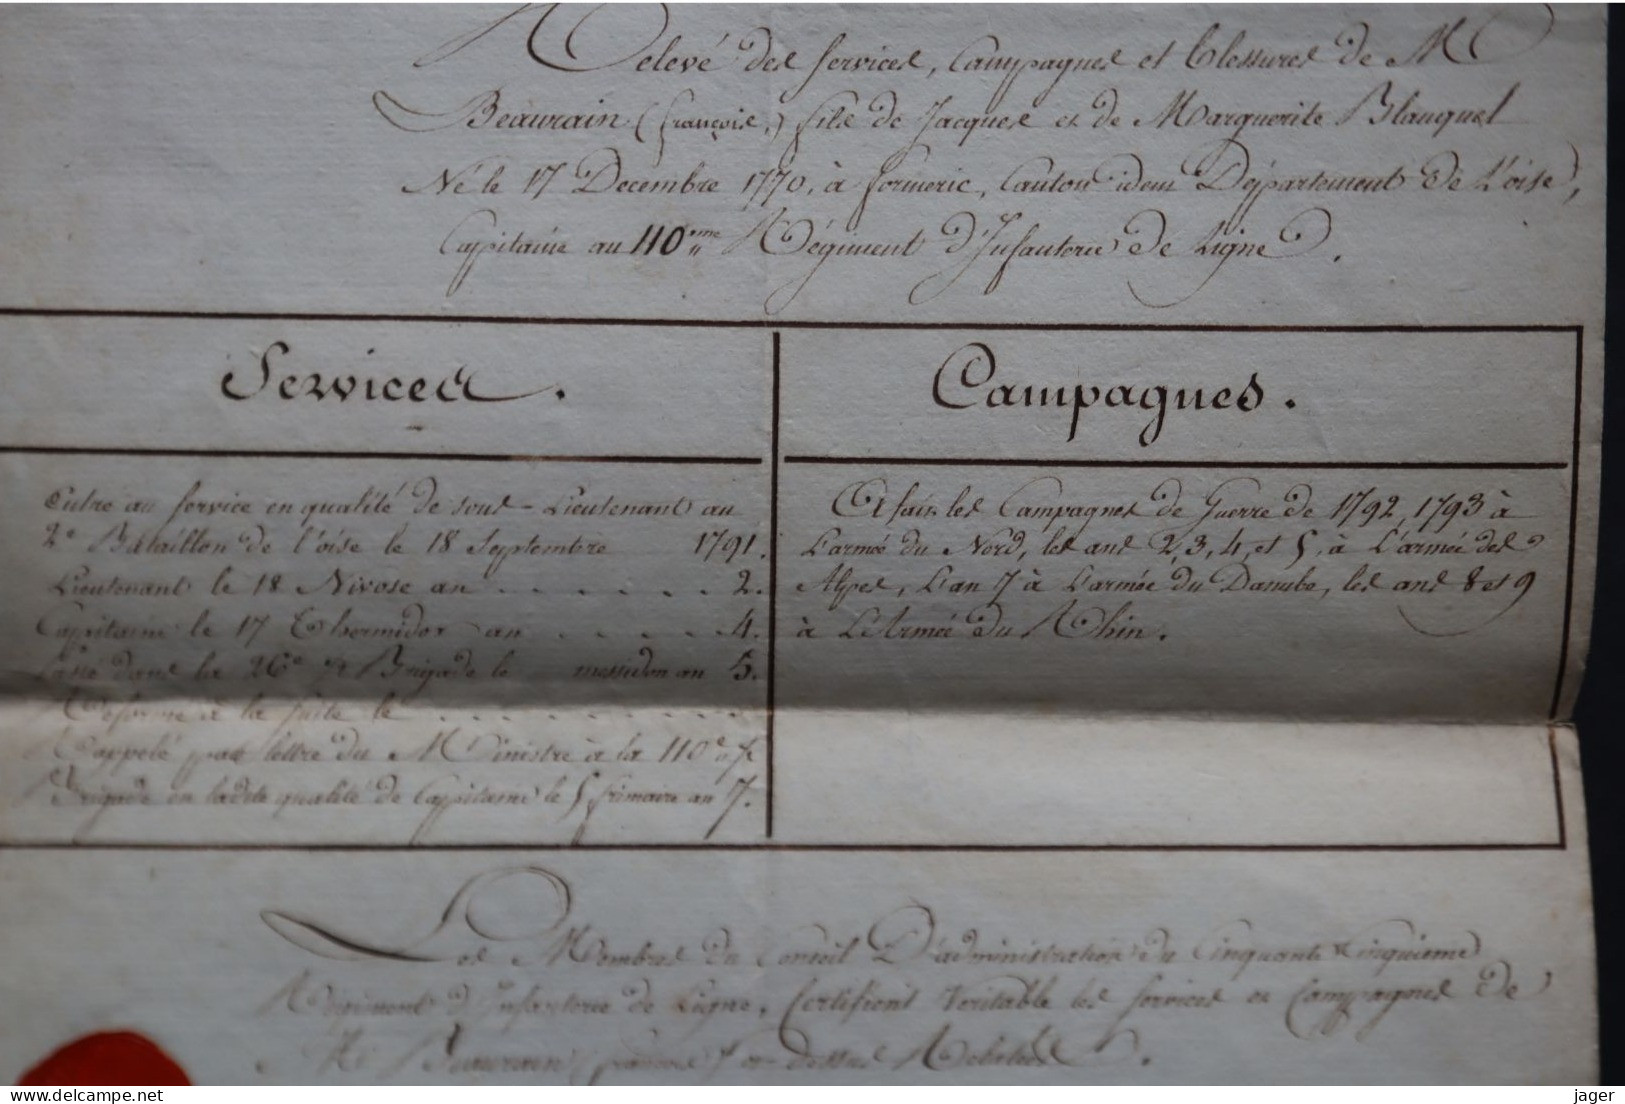 Relevé des services, Campagnes et blessures de M
Beaurain (françois,) fils de Jacques et de Marguerite Blanquet
Né le 17 Decembre 1770, à formerie, Canton idem Département de L'oise,
Capitaine au 110.eme Régiment d'Infanterie de Ligne.
Services.
Entre au service en qualité de sous-Lieutenant au
2e Bataillon de l'oise le 18 Septembre 1791.
Lieutenant le 18 Nivose an . . . . . . 2.
Capitaine le 17 Thermidor an . . . . . 4.
Passé dans la 26e ½ Brigade le messidor an 5.
Reformé à la suite le . . . . . . . .
Rappelé par lettre du Ministre à la 110e ½
Brigade en ladite qualité de Capitaine le 5 frimaire an 7.
Campagnes.
A fait les Campagnes de Guerre de 1792, 1793 à
L'armée du Nord, les ans 2, 3, 4, et 5, à L'armée des
Alpes, L'an 7 à L'armée du Danube, les ans 8 et 9
à L'Armée du Rhin.
Les Membres du Conseil D'administration du Cinquante Cinquieme
Régiment d'Infanterie de Ligne, Certifient Veritable les services et Campagnes de
M. Beaurain (françois) ci-dessus Relatés.
jager